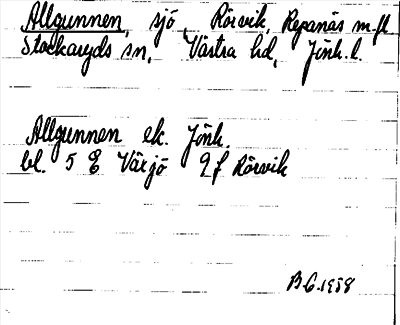 Allgunnen, sjö, Rörvik, Repanäs m.fl.
Stockaryds sn, Västra hd, Jönk. l.
Allgunnen ek. Jönk.
bl. 5 E Växjö 9 f Rörvik
B 6.1958